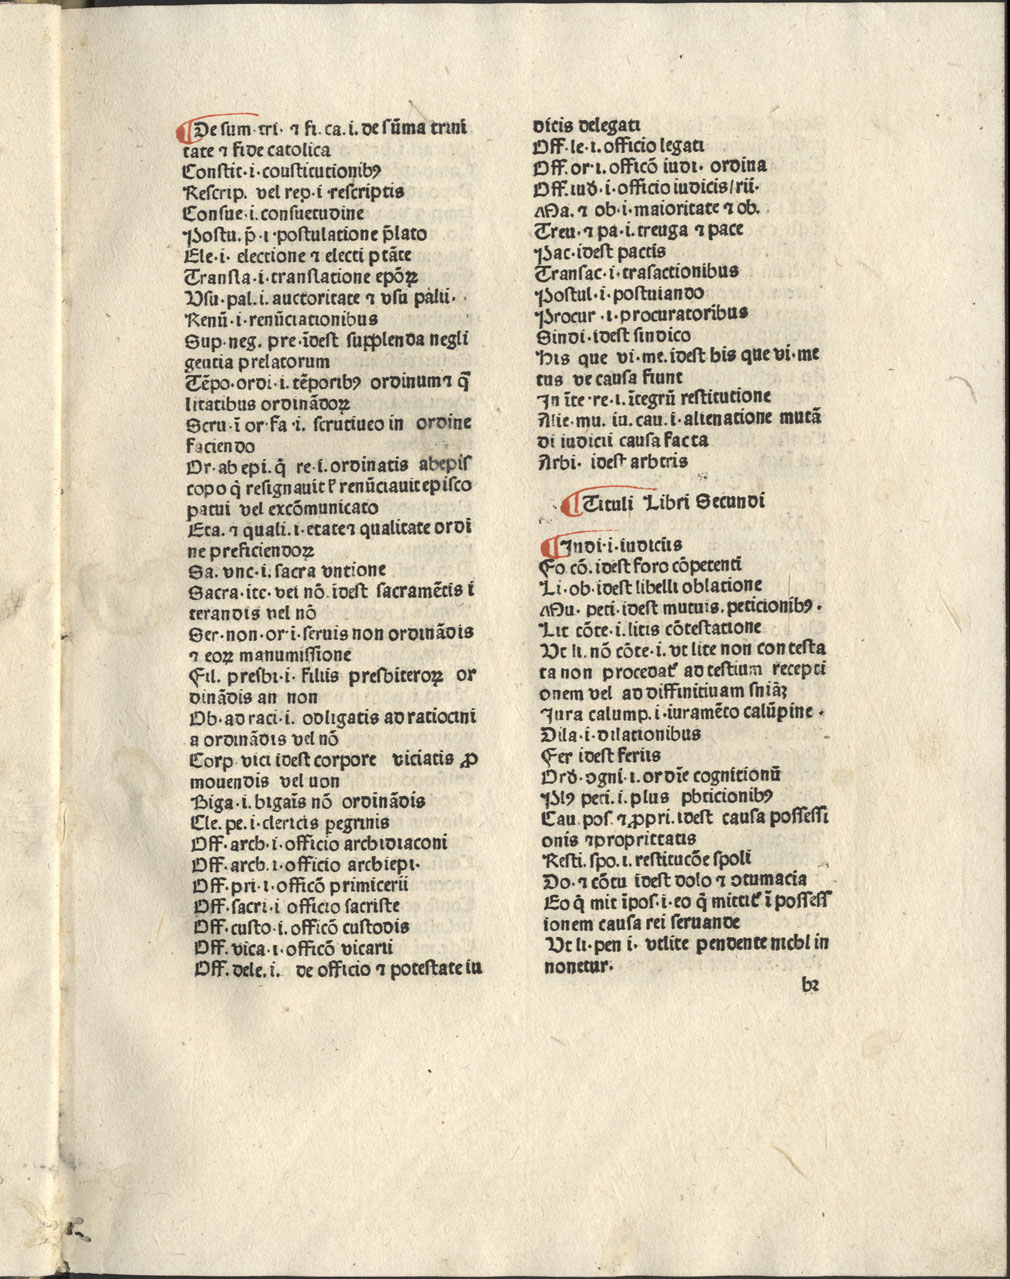 ¶ De sum·tri· ⁊ fi. ca. i. de sūma trini
tate ⁊ fide catolica
Constit·i·coustitutionibꝰ
Rescrip. vel rep·i·rescriptis
Consue·i.consuetudine
Postu. p̄·i·postulatione p̄lato
Ele·i· electione ⁊ electi ptāte
Transla·i·translatione epōꝝ
Usu·pal.i. auctoritate ⁊ vsu palii·
Renū·i·renūciationibus
Sup·neg. pre·īdest supplenda negli
gentia prelatorum
Tēpo·ordi·i.tēporibꝰ ordinum⁊ q̄
litatibus ordinādoꝝ
Scru·ī or·fa·i. scrutiueo in ordine
faciendo
Or·ab epi.q̄ re·i.ordinatis abepis
copo q̄ resignauit ł renūciauit episco
patui vel excōmunicato
Eta. ⁊ quali.i·etate⁊ qualitate ordi
ne preficiendoꝝ
Sa. vnc·i.sacra vntione
Sacra·ite·vel nō.idest sacramētis i
terandis vel nō
Ser·non·or·i·seruis non ordinādis
⁊ eoꝝ manumissione
Fil. presbi·i·filiis presbiteroꝝ or
dinādis an non
Ob·ad raci·i. obligatis ad ratiocini
a ordinādis vel nō
Corp vici idest corpore viciatis ꝓ
mouendis vel uon
Biga·i.bigaīs nō ordinādis
Cle. pe.i·clericis pegrinis
Off·arch·i·officio archidiaconi
Off·arch.i·officio archiepi·
Off·pri·i·officō primicerii
Off·sacri·i officio sacriste
Off·custo·i.officō custodis
Off·vica·i·officō vicarii
Off·dele·i. de officio ⁊ potestate iu
dicis delegati
Off·le·i.officio legati
Off·or·i.officō iudi· ordina
Off.iud·i·officio iudicis/rii·
Ma. ⁊ ob·i·maioritate ⁊ ob.
Treu·⁊ pa·i.treuga ⁊ pace
Pac·idest pactis
Transac·i·trasactionibus
Postul·i·postulando
Procur·i·procuratoribus
Sindi·idest sindico
His que vi·me.idest his que vi·me
tus ve causa fiunt
In īte·re·i.ītegrū restitutione
Alie·mu. iu.cau.i·alienatione mutā
di iudicii causa facta
Arbi· idest arbtris
¶ Tituli Libri Secundi
¶ Iudi·i·iudiciis
Fo cō. idest foro cōpetenti
Li·ob·idest libelli oblatione
Mu· peti·idest mutuis.peticionibꝰ·
Lit cōte·i.litis cōtestatione
Ut li. nō cōte·i.vt lite non contesta
ta non procedat ad testium recepti
onem vel ad diffinitiuam snīaꝝ
Jura calump.i·iuramēto calūpine·
Dila·i·dilationibus
Fer idest feriis
Ord·ↄgni·i·ordīe cognitionū
Plꝰ peti.i.plus pbticionibꝰ
Cau pos ⁊ ꝓpri.idest causa possessi
onis ⁊proprittatis
Resti.spo.i.restitucōe spoli
Do·⁊ cōtu īdest dolo ⁊ ↄtumacia
Eo q̄ mit īpos·i·eo q̄ mittit ī possess
ionem causa rei seruande
Ut li·pen i·vtlite pendente nichl in
nonetur·
b2